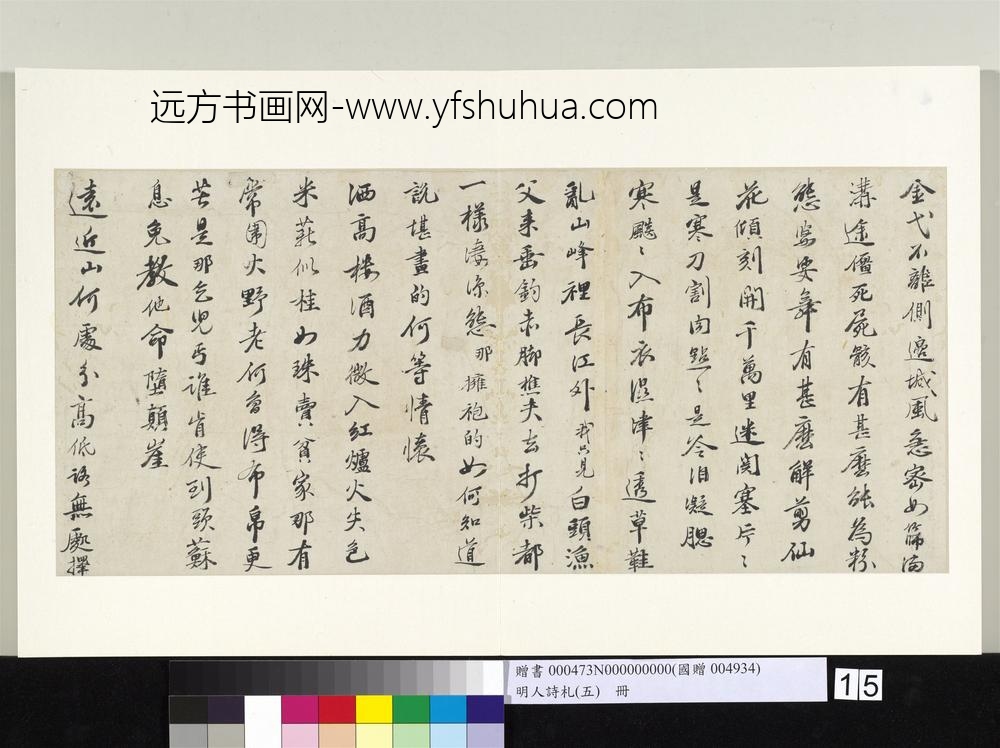 远方书画网-www.yfshuhua.com
金戈不離側邊城風急密如篩滿
溝途僵死屍骸有甚麼能為粉
態當要舞有甚麼解剪仙
花傾刻開千萬里迷関塞片〻
是寒刀割肉點〻是冷泪凝腮
寒颼〻入布衣濕津〻透草鞋
亂山峰裡長江外我只見白頭漁
父来垂釣赤脚樵夫去打柴都
一樣凄凉態那擁袍的如何知道
說堪畫的何等情懷
酒高樓酒力微入紅爐火失色
米薪似桂如珠賣貧家那有
常圍火野老何曾得布帛更
苦是那乞兒丐誰肯使到頭蘇
息免教他命墮顛崖
遠近山何處分高低路無處擇
贈書 000473N000000000(國贈 004934)
明人詩札(五) 冊
15